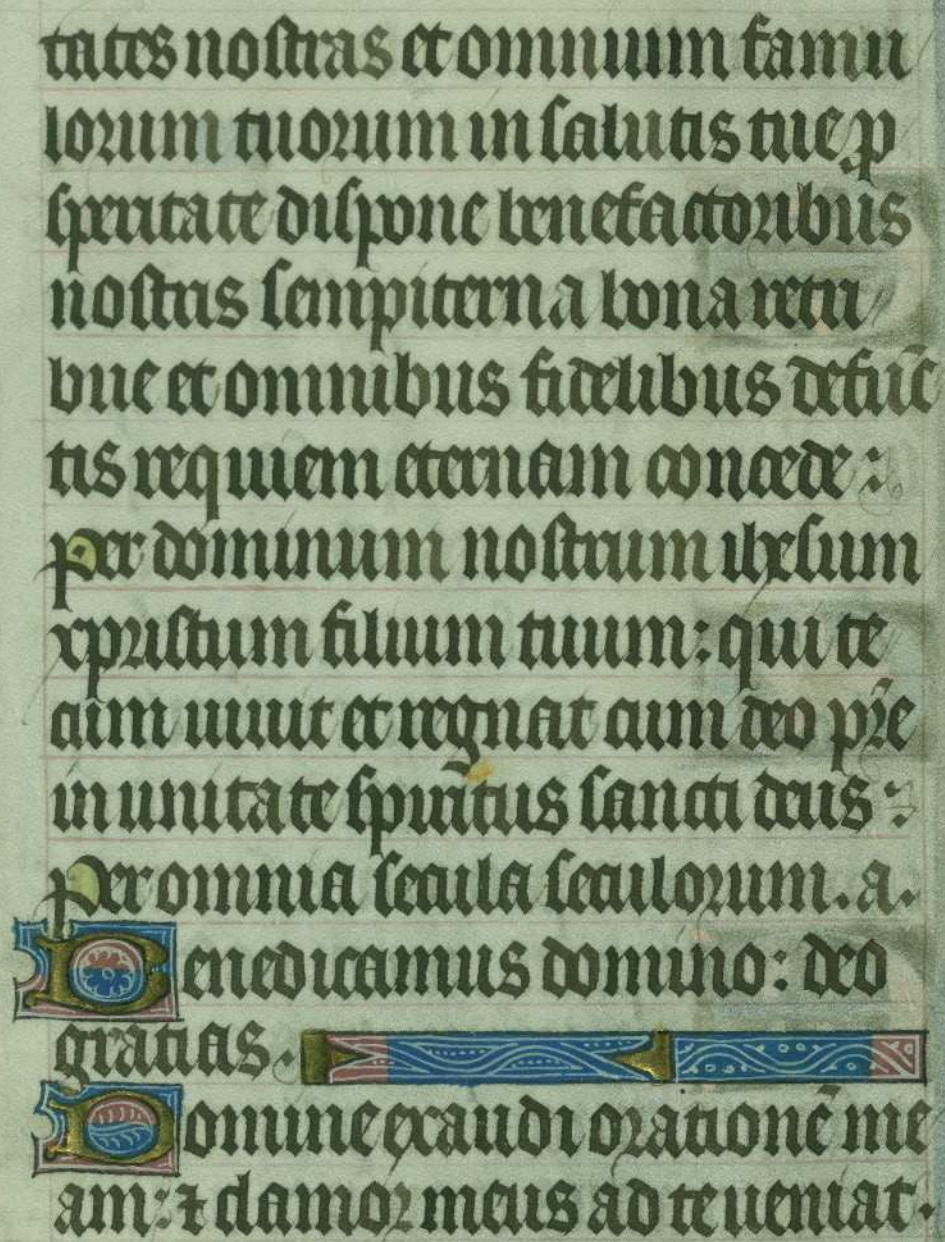 tates nostras et omnium famu
lorum tuorum in salutis tue ꝓ
speritate dispone benefactoribus
nostris sempiterna bona retri
bue et omnibus fidelibus defūc
tis requiem eternam concede :
per dominum nostrum ihesum
xpristum filium tuum : qui te
cum uiuit et regnat cum deo pr̄e
in unitate spiritus sancti deus :
per omnia secula seculorum . a .
Benedicamus domino : deo
gratias .
Domine exaudi orationē me
am : ⁊ clamor meus ad te ueniat .